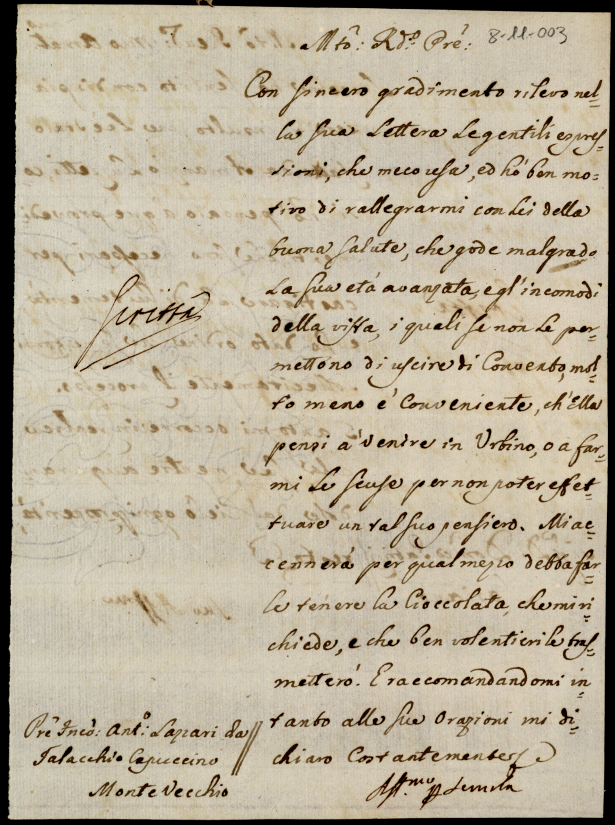 8-11-003
Mtô: Rdô Prê:
Con sincero gradimento rilevo nel=
la sua Lettera Le gentili espres=
sioni, che meco usa, ed hò ben mo=
tivo di rallegrarmi con Lei della
buona Salute, che gode malgrado
La sua età avanzata, e gl'incomodi
della vista, i quali se non Le per=
mettono di uscire di Convento, mol=
to meno è conveniente, ch'Ella
pensi a venire in Urbino, o a far=
mi Le Scuse per non poter effet=
tuare un tal suo pensiero. Mi ac=
cennerà per qual mezzo debba far=
le tenere la Cioccolata, che mi ri=
chiede, e che ben volentieri le tras=
metterò. E raccomandandomi in=
tanto alle sue Orazioni mi di=
chiaro Costantemente
Scritta
Prê Incô: Antº: Lazzari da
Talacchio Capuccino
Monte Vecchio
Affmo